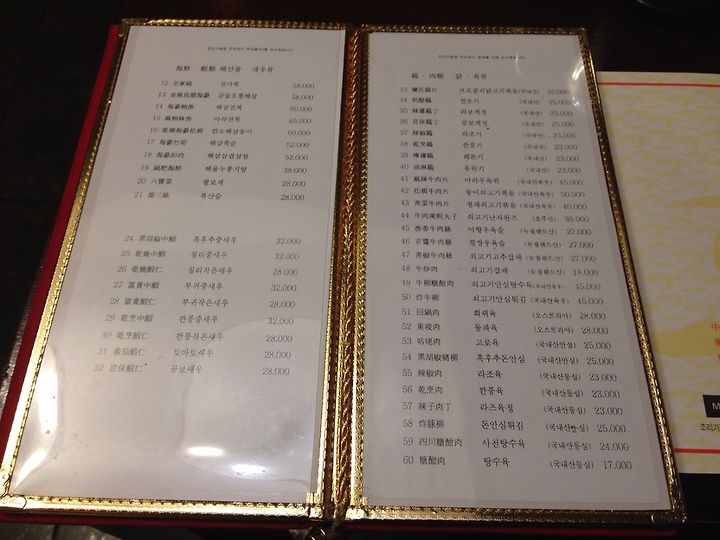 海鮮 · 蝦類 해산물 · 새우류
12 全家福 전가복 58.000
13 金絲烏龍海蔘 금슬오룡해삼 58.000
14 海蔘鮑漁 해삼전복 60.000
15 麻鮑辣漁 마라전복 65.000
16 乾燒海蔘松栮 깐소해삼송이 60.000
17 海蔘竹筍 해삼죽순 52.000
18 海蔘扣肉 해삼삼겹살찜 52.000
19 鍋粑海鮮 해물누룽지탕 38.000
20 八寶菜 팔보채 28.000
21 溜三絲 류산슬 28.000
24 黑胡椒中蝦 흑후추중새우 32.000
25 乾燒中蝦 칠리중새우 32.000
26 乾燒蝦仁 칠리작은새우 28.000
27 富貴中蝦 부귀중새우 32.000
28 富貴蝦仁 부귀작은새우 28.000
29 乾烹中蝦 깐풍중새우 32.000
30 乾烹蝦仁 깐풍작은새우 28.000
31 番茄蝦仁 토마토새우 28.000
32 宮保蝦仁 공보새우 28.000
鷄 · 肉類 닭 · 육류
33 蘭花鷄片 브로컬리닭고기볶음(국내산) 25.000
34 煎醋鷄 전초기 (국내산) 25.000
35 辣爆鷄丁 라보계정 (국내산) 25.000
36 宮保鷄丁 궁보계정 (국내산) 25.000
37 辣椒鷄 라조기 (국내산) 23.000
38 乾烹鷄 깐풍기 (국내산) 23.000
39 檸檬鷄 레몬기 (국내산) 23.000
40 油淋鷄 유린기 (국내산) 23.000
41 麻辣牛肉片 마라우육편 (국내산육우) 45.000
42 松栮牛肉片 송이쇠고기볶음 (국내산육우) 50.000
43 靑菜牛肉片 청채쇠고기볶음 (국내산육우) 40.000
44 牛肉南煎丸子 쇠고기난자완즈 (호주산) 36.000
45 漁香牛肉絲 어향우육슬 (뉴질랜드산) 27.000
46 京醬牛肉絲 경장우육슬 (뉴질랜드산) 27.000
47 靑椒牛肉絲 쇠고기고추잡채 (뉴질랜드산) 27.000
48 牛炒肉 쇠고기잡채 (뉴질랜드산) 18.000
49 牛柳糖醋肉 쇠고기안심탕수육(국내산육우) 45.000
50 炸牛柳 쇠고기안심튀김 (국내산육우) 45.000
51 回鍋肉 회궈육 (오스트리아) 28.000
52 東坡肉 동파육 (오스트리아) 28.000
53 咕咾肉 고로육 (국내산안심) 25.000
54 黑胡椒猪柳 흑후추돈안심 (국내산안심) 25.000
55 辣椒肉 라조육 (국내산등심) 23.000
56 乾烹肉 깐풍육 (국내산등심) 23.000
57 辣子肉丁 라즈육정 (국내산등심) 23.000
58 炸豚柳 돈안심튀김 (국내산안심) 25.000
59 四川糖醋肉 사천탕수육 (국내산등심) 24.000
60 糖醋肉 탕수육 (국내산등심) 17.000
M
조리가